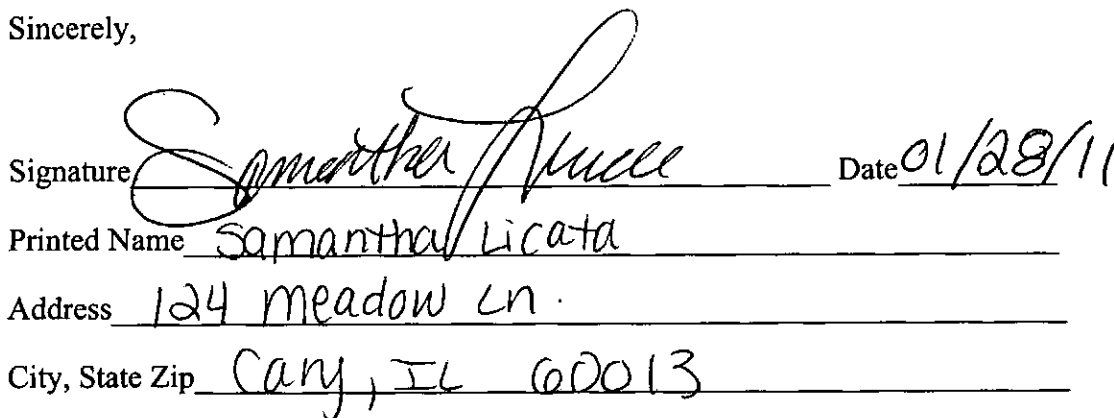 Sincerely,
Signature Samantha Date 01/28/11
Printed Name Samantha Licata
Address 124 Meadow Ln.
City, State Zip Cary, IL 60013